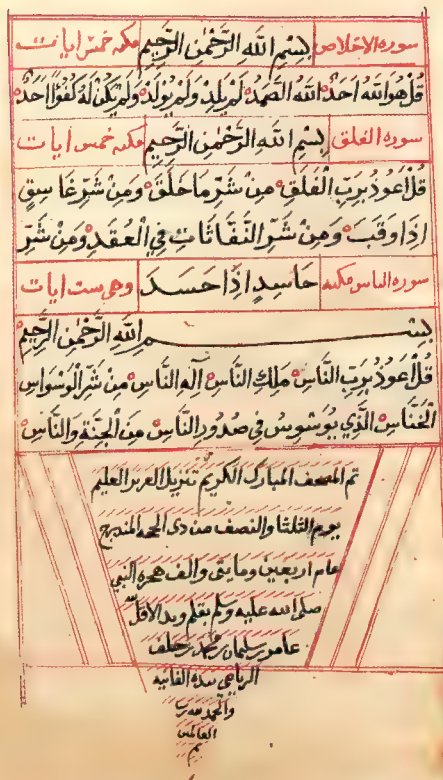 سورة الاخلاص بِسْمِ اللهِ الرَّحْمٰنِ الرَّحِيْمِ مكيه خمس ايات
قُلْ هُوَ اللهُ اَحَدٌ اَللهُ الصَّمَدُ لَمْ يَلِدْ وَلَمْ يُوْلَدْ وَلَمْ يَكُنْ لَهُ كُفُوًا اَحَدٌ
سورة الفلق بِسْمِ اللهِ الرَّحْمٰنِ الرَّحِيْمِ مكيه خمس ايات
قُلْ اَعُوْذُ بِرَبِّ الْفَلَقِ مِنْ شَرِّ مَا خَلَقَ وَمِنْ شَرِّ غَاسِقٍ
اِذَا وَقَبَ وَمِنْ شَرِّ النَّفَّاثَاتِ فِي الْعُقَدِ وَمِنْ شَرِّ
سورة الناس مكيه حَاسِدٍ اِذَا حَسَدَ وهي ست ايات
بِسْمِ اللهِ الرَّحْمٰنِ الرَّحِيْمِ
قُلْ اَعُوْذُ بِرَبِّ النَّاسِ مَلِكِ النَّاسِ اِلٰهِ النَّاسِ مِنْ شَرِّ الْوَسْوَاسِ
الْخَنَّاسِ الَّذِي يُوَسْوِسُ فِي صُدُوْرِ النَّاسِ مِنَ الْجِنَّةِ وَالنَّاسِ
تم المصحف المبارك الكريم تنزيل العزيز العليم
يوم الثلثا والنصف من ذى الحجه
عام اربعين ومايتى والف هجرة النبي
صلى الله عليه وسلم بقلم ويد الاقل
عامر بن سليمان بن محمد بن خلف
الريامي بيده الفانيه
والحمد لله رب
العالمين
تم